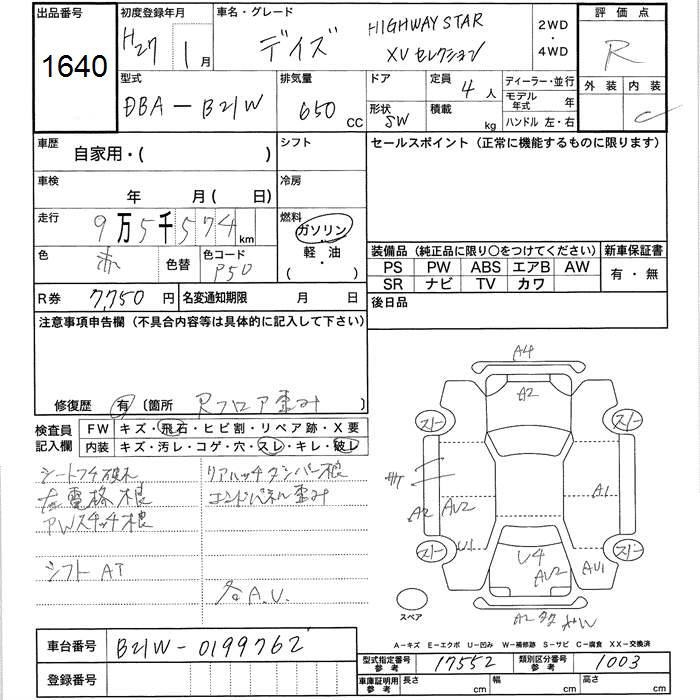 出品番号
1640
初度登録年月
H27 1月
車名・グレード
デイズ HIGHWAY STAR
XV セレクション
2WD
・
4WD
評価点
R
外装 内装
C
型式
DBA-B21W
排気量
650 CC
ドア
形状
SW
定員
4人
積載
kg
ディーラー・並行
モデル年式 年
ハンドル 左・右
車歴
自家用・( )
シフト
セールスポイント（正常に機能するものに限ります）
車検
年 月( 日)
冷房
走行
9万5千574km
燃料
ガソリン
・
軽・油
・
( )
色
赤
色替
色コード
P50
装備品（純正品に限り〇をつけてください）
PS PW ABS エアB AW
SR ナビ TV カワ
新車保証書
有・無
R券 7,750円
名変通知期限 月 日
後日品
注意事項申告欄（不具合内容等は具体的に記入して下さい）
修復歴 有 〔箇所 Rフロア歪み 〕
検査員
記入欄
FW キズ・飛石・ヒビ割・リペア跡・X要
内装 キズ・汚レ・コゲ・穴・スレ・キレ・破レ
シートフチ破れ
左電格不良
PWスイッチ不良
シフト AT
リアハッチダンパー不良
エンドパネル歪み
各A.U.
A4
A2
スレ
スレ
A2
AU2
A1
スレ
スレ
U1
U4
AU2
AU1
A2
スペア
A-キズ E-エクボ U-凹み W-補修跡 S-サビ C-腐食 XX-交換済
車台番号 B21W-0199762
登録番号
型式指定番号
参考
17552
類別区分番号
参考
1003
車庫証明用
参考
長さ cm
幅 cm
高さ cm